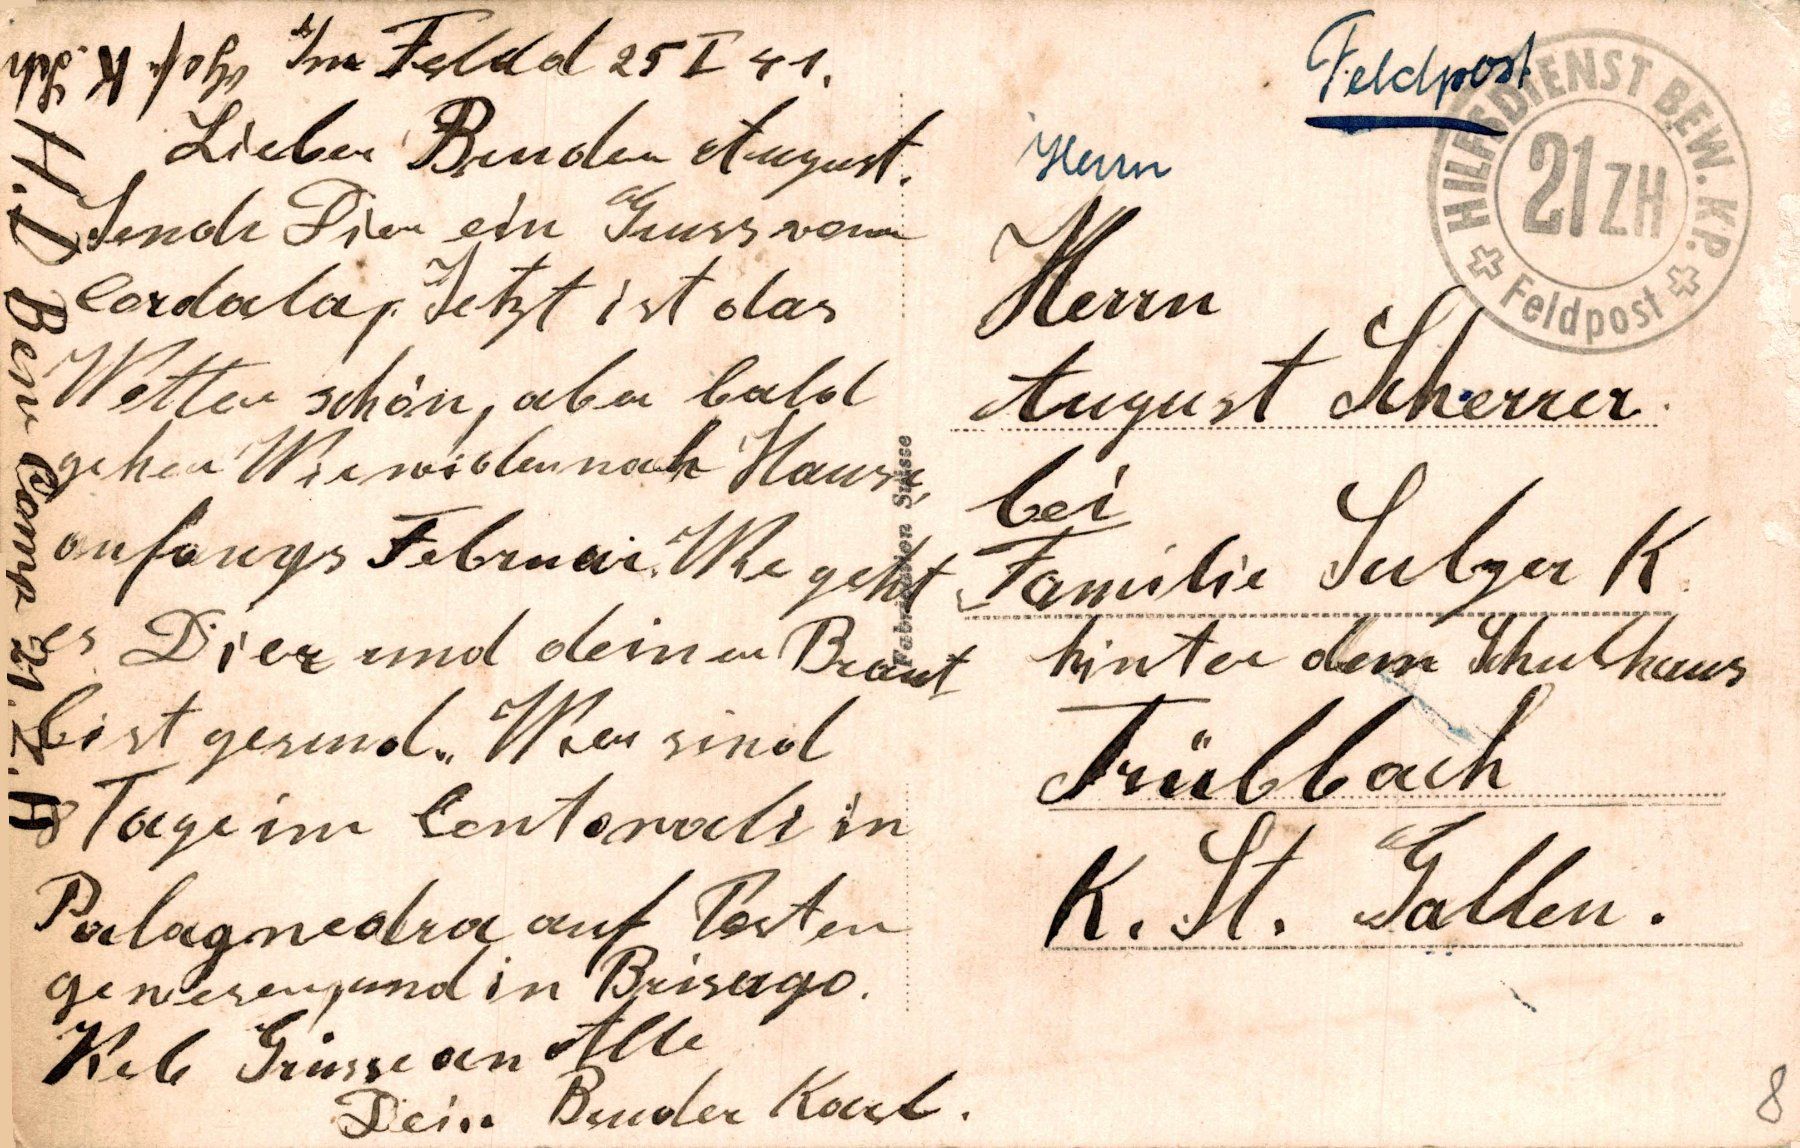 Im Feldd 25 I 41.
Lieber Bruder August.
Sende Dier ein Gruss vom
Cordola, Jetzt ist das
Wetter schön, aber bald
gehen Wir wider nach Hause,
anfangs Februar. Wie geht
es Dier und deiner Braut
bist gesund.. Wier sind
8 Tage im Centovali in
Palagnedra auf Posten
gewesen, und in Brisago.
Grüsse an Alle
Dein Bruder Karl.
K. Sch
H. D Bew Comp 21. Z. H
Feldpost
Herrn
Herrn
August Scherrer.
bei
Familie Sulzer K.
hinter dem Schulhaus
Trübbach
K. St. Gallen.
HILFSDIENST BEW. KP.
21 ZH
Feldpost
Fabrication Suisse
8